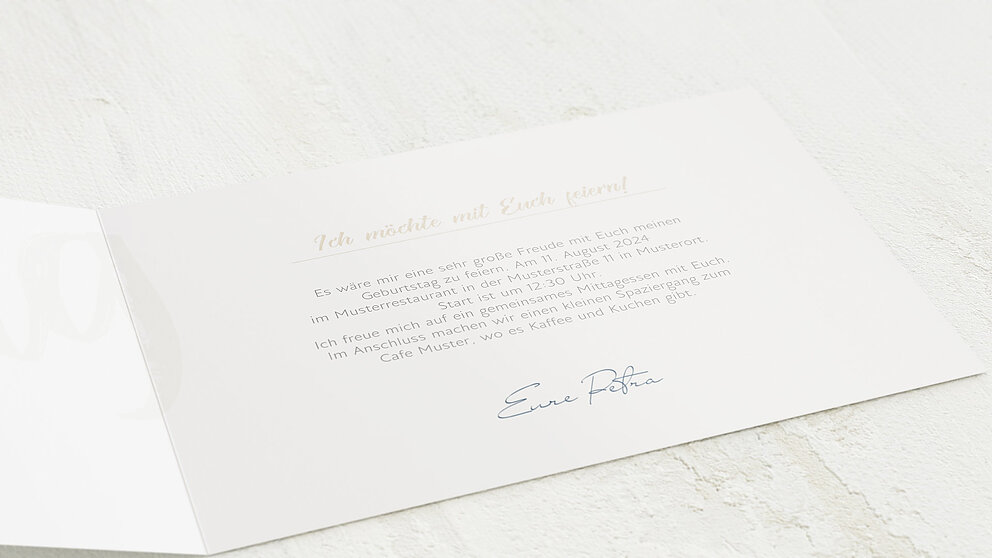 Ich möchte mit Euch feiern!
Es wäre mir eine sehr große Freude mit Euch meinen
Geburtstag zu feiern. Am 11. August 2024
im Musterrestaurant in der Musterstraße 11 in Musterort.
Start ist um 12:30 Uhr.
Ich freue mich auf ein gemeinsames Mittagessen mit Euch.
Im Anschluss machen wir einen kleinen Spaziergang zum
Cafe Muster, wo es Kaffee und Kuchen gibt.
Eure Petra